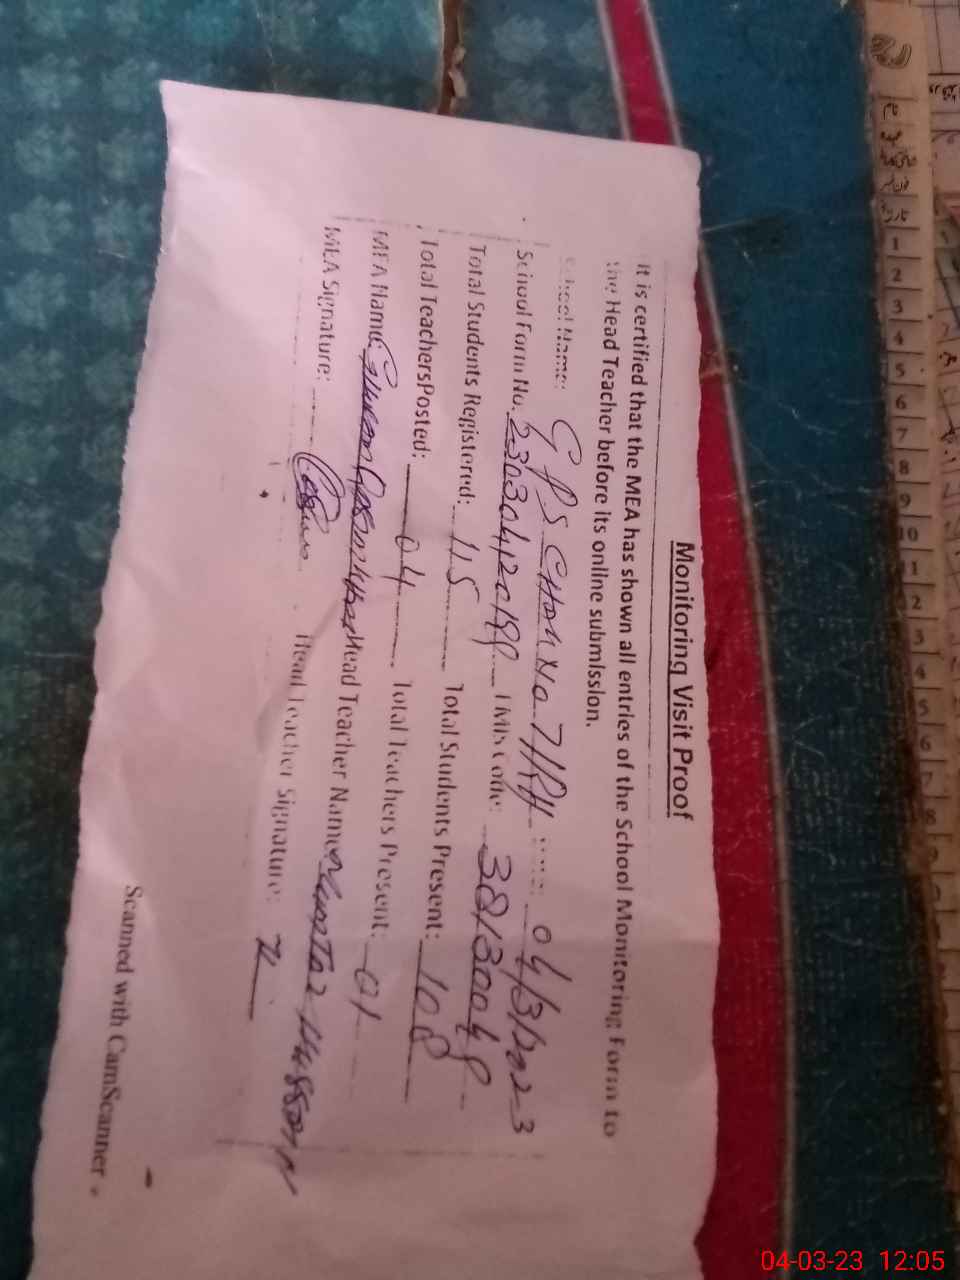 Monitoring Visit Proof
It is certified that the MEA has shown all entries of the School Monitoring Form to
the Head Teacher before its online submission.
School Name: GPS CHAK No 7/RH 04/3/2023
School Form No. EMIS Code: 38130048
Total Students Registered: 115 Total Students Present: 108
Total TeachersPosted: 04 Total Teachers Present: 01
MEA Name: Head Teacher Name: Mumtaz Hussain
MEA Signature: Head Teacher Signature:
Scanned with CamScanner
1 2 3 4 5 6 7 8 9 10 11 2 3 4 5 6 7 8
04-03-23 12:05